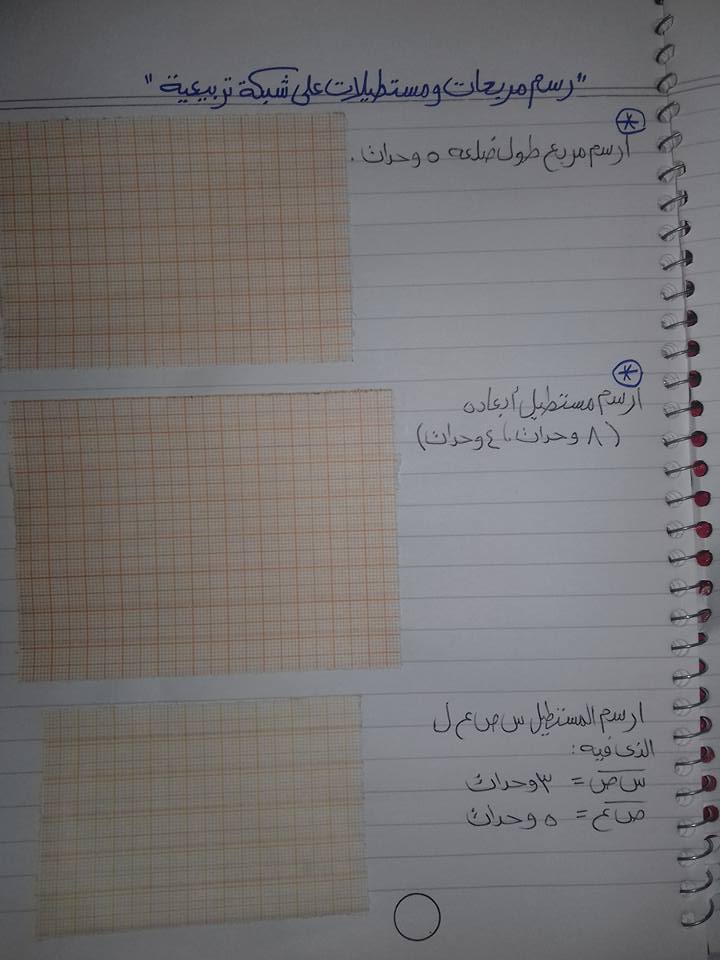 "رسم مربعات ومستطيلات على شبكة تربيعية"
* ارسم مربع طول ضلعه ٥ وحدات.
* ارسم مستطيل أبعاده
(٨ وحدات، ٤ وحدات)
ارسم المستطيل س ص ع ل
الذى فيه:
س ص = ٣ وحدات
ص ع = ٥ وحدات